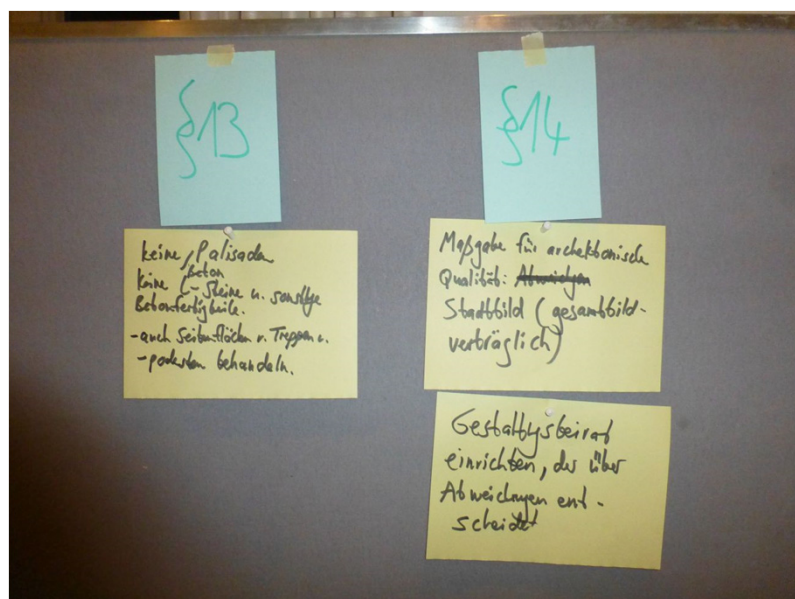 §13
keine Palisaden
keine Beton
-Steine u. sonstige
Betonfertigteile.
-auch Seitenflächen v. Treppen u.
-podesten behandeln.
§14
Maßgabe für archektonische
Qualität: Abweichgen
Stadtbild (gesamtbild-
verträglich)
Gestaltgsbeirat
einrichten, der über
Abweichngen ent-
scheidet